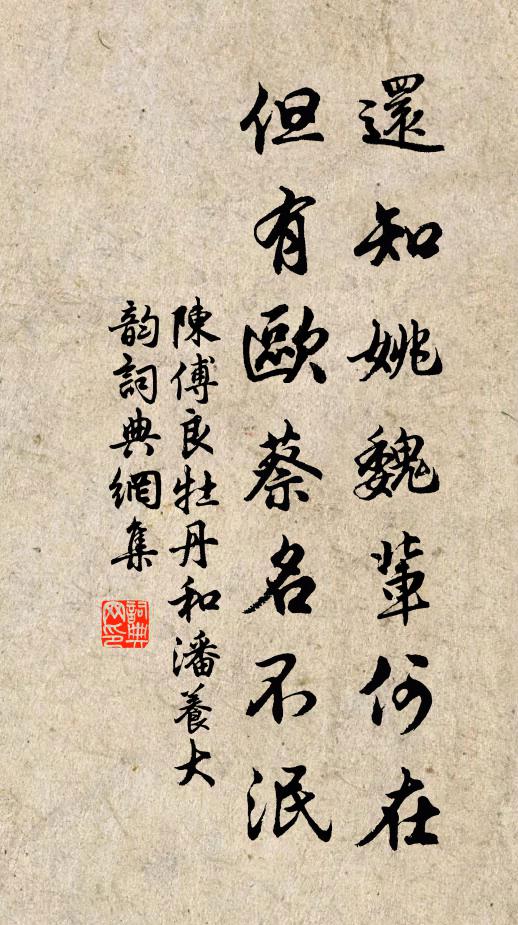 還知姚魏輩何在
但有歐蔡名不泯
陳傅良牡丹和潘養大
韵詞典網集
詞典网印